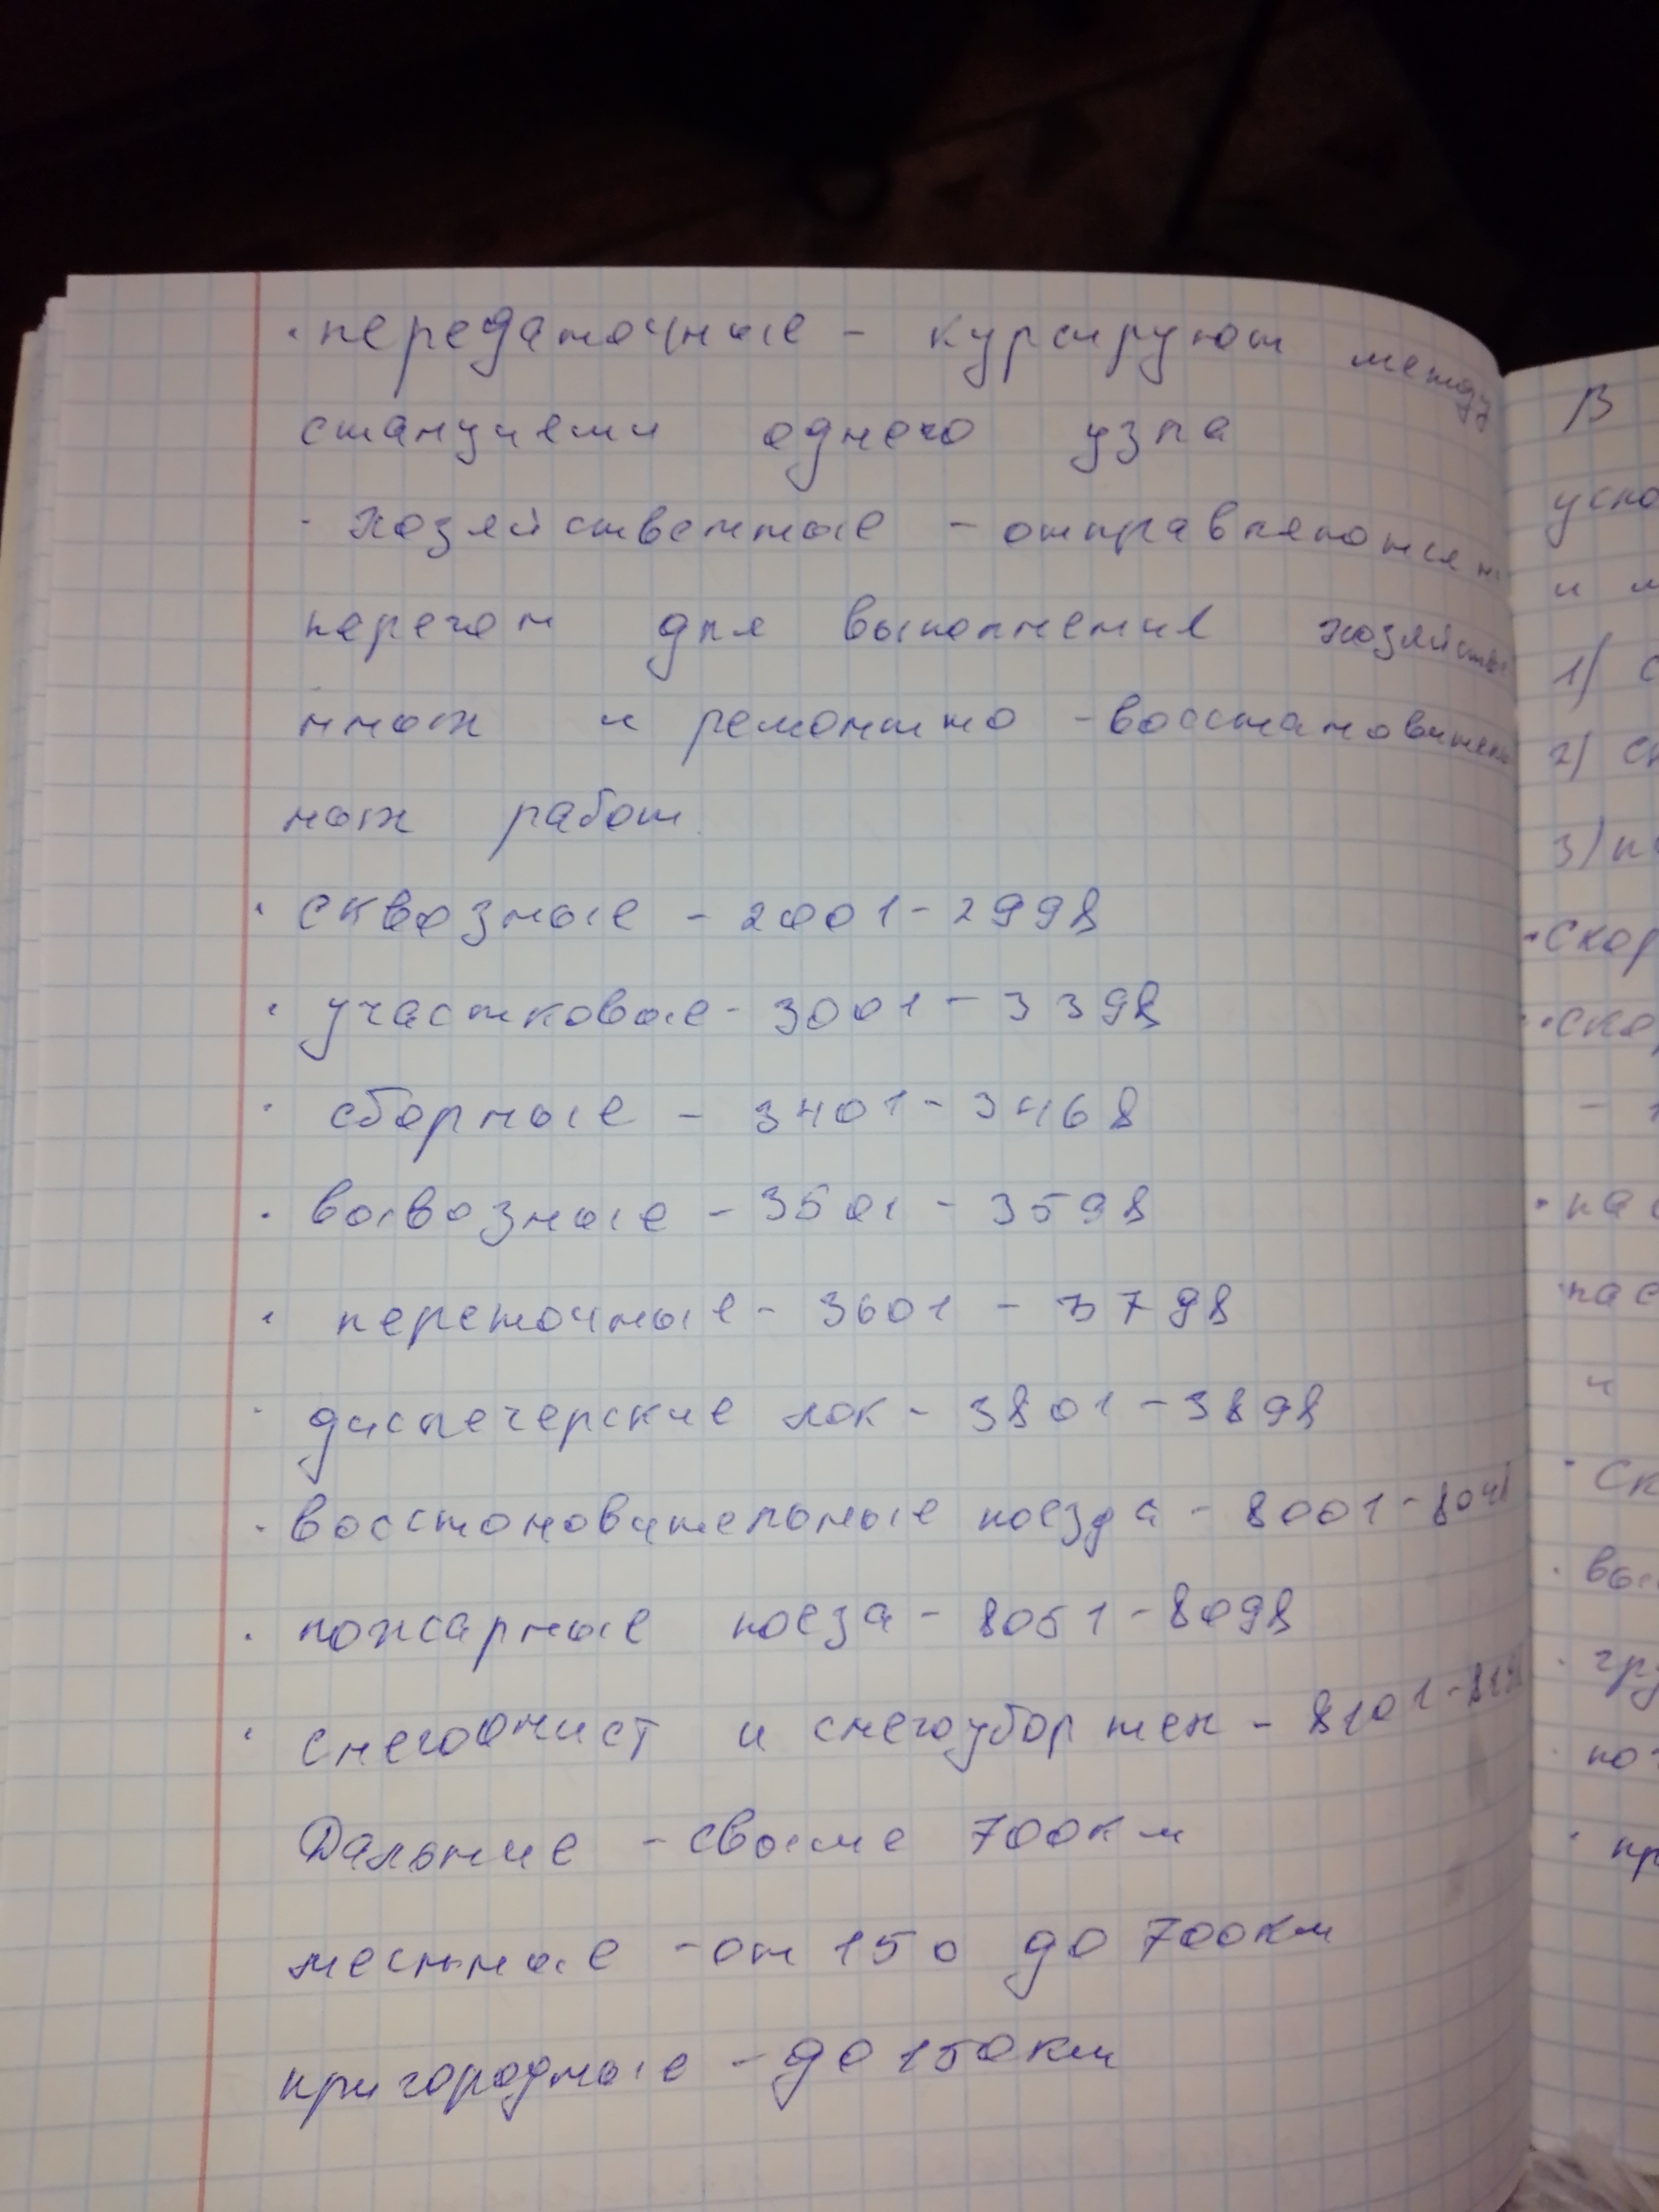 · передаточные - курсируют между
станциями одного узла
· хозяйственные - отправляются н
перегон для выполнения хозяйстве
нных и ремонтно - восстановитель
ных работ
· сквозные - 2001 - 2998
· участковые - 3001 - 3398
· сборные - 3401 - 3468
· вывозные - 3501 - 3598
· переточные - 3601 - 3798
· диспечерские лок - 3801 - 3898
· восстоновительные поезда - 8001 - 8048
· пожарные поеза - 8051 - 8098
· снегоочист и снегоубор тех - 8101 -
Дальние - свыше 700км
местные - от 150 до 700км
пригородные - до 150км
В
уско
и
1) С
2) Ск
3) п
· скор
· ско
-
· пас
пас
и
· ск
· вы
· гру
· по
· пр